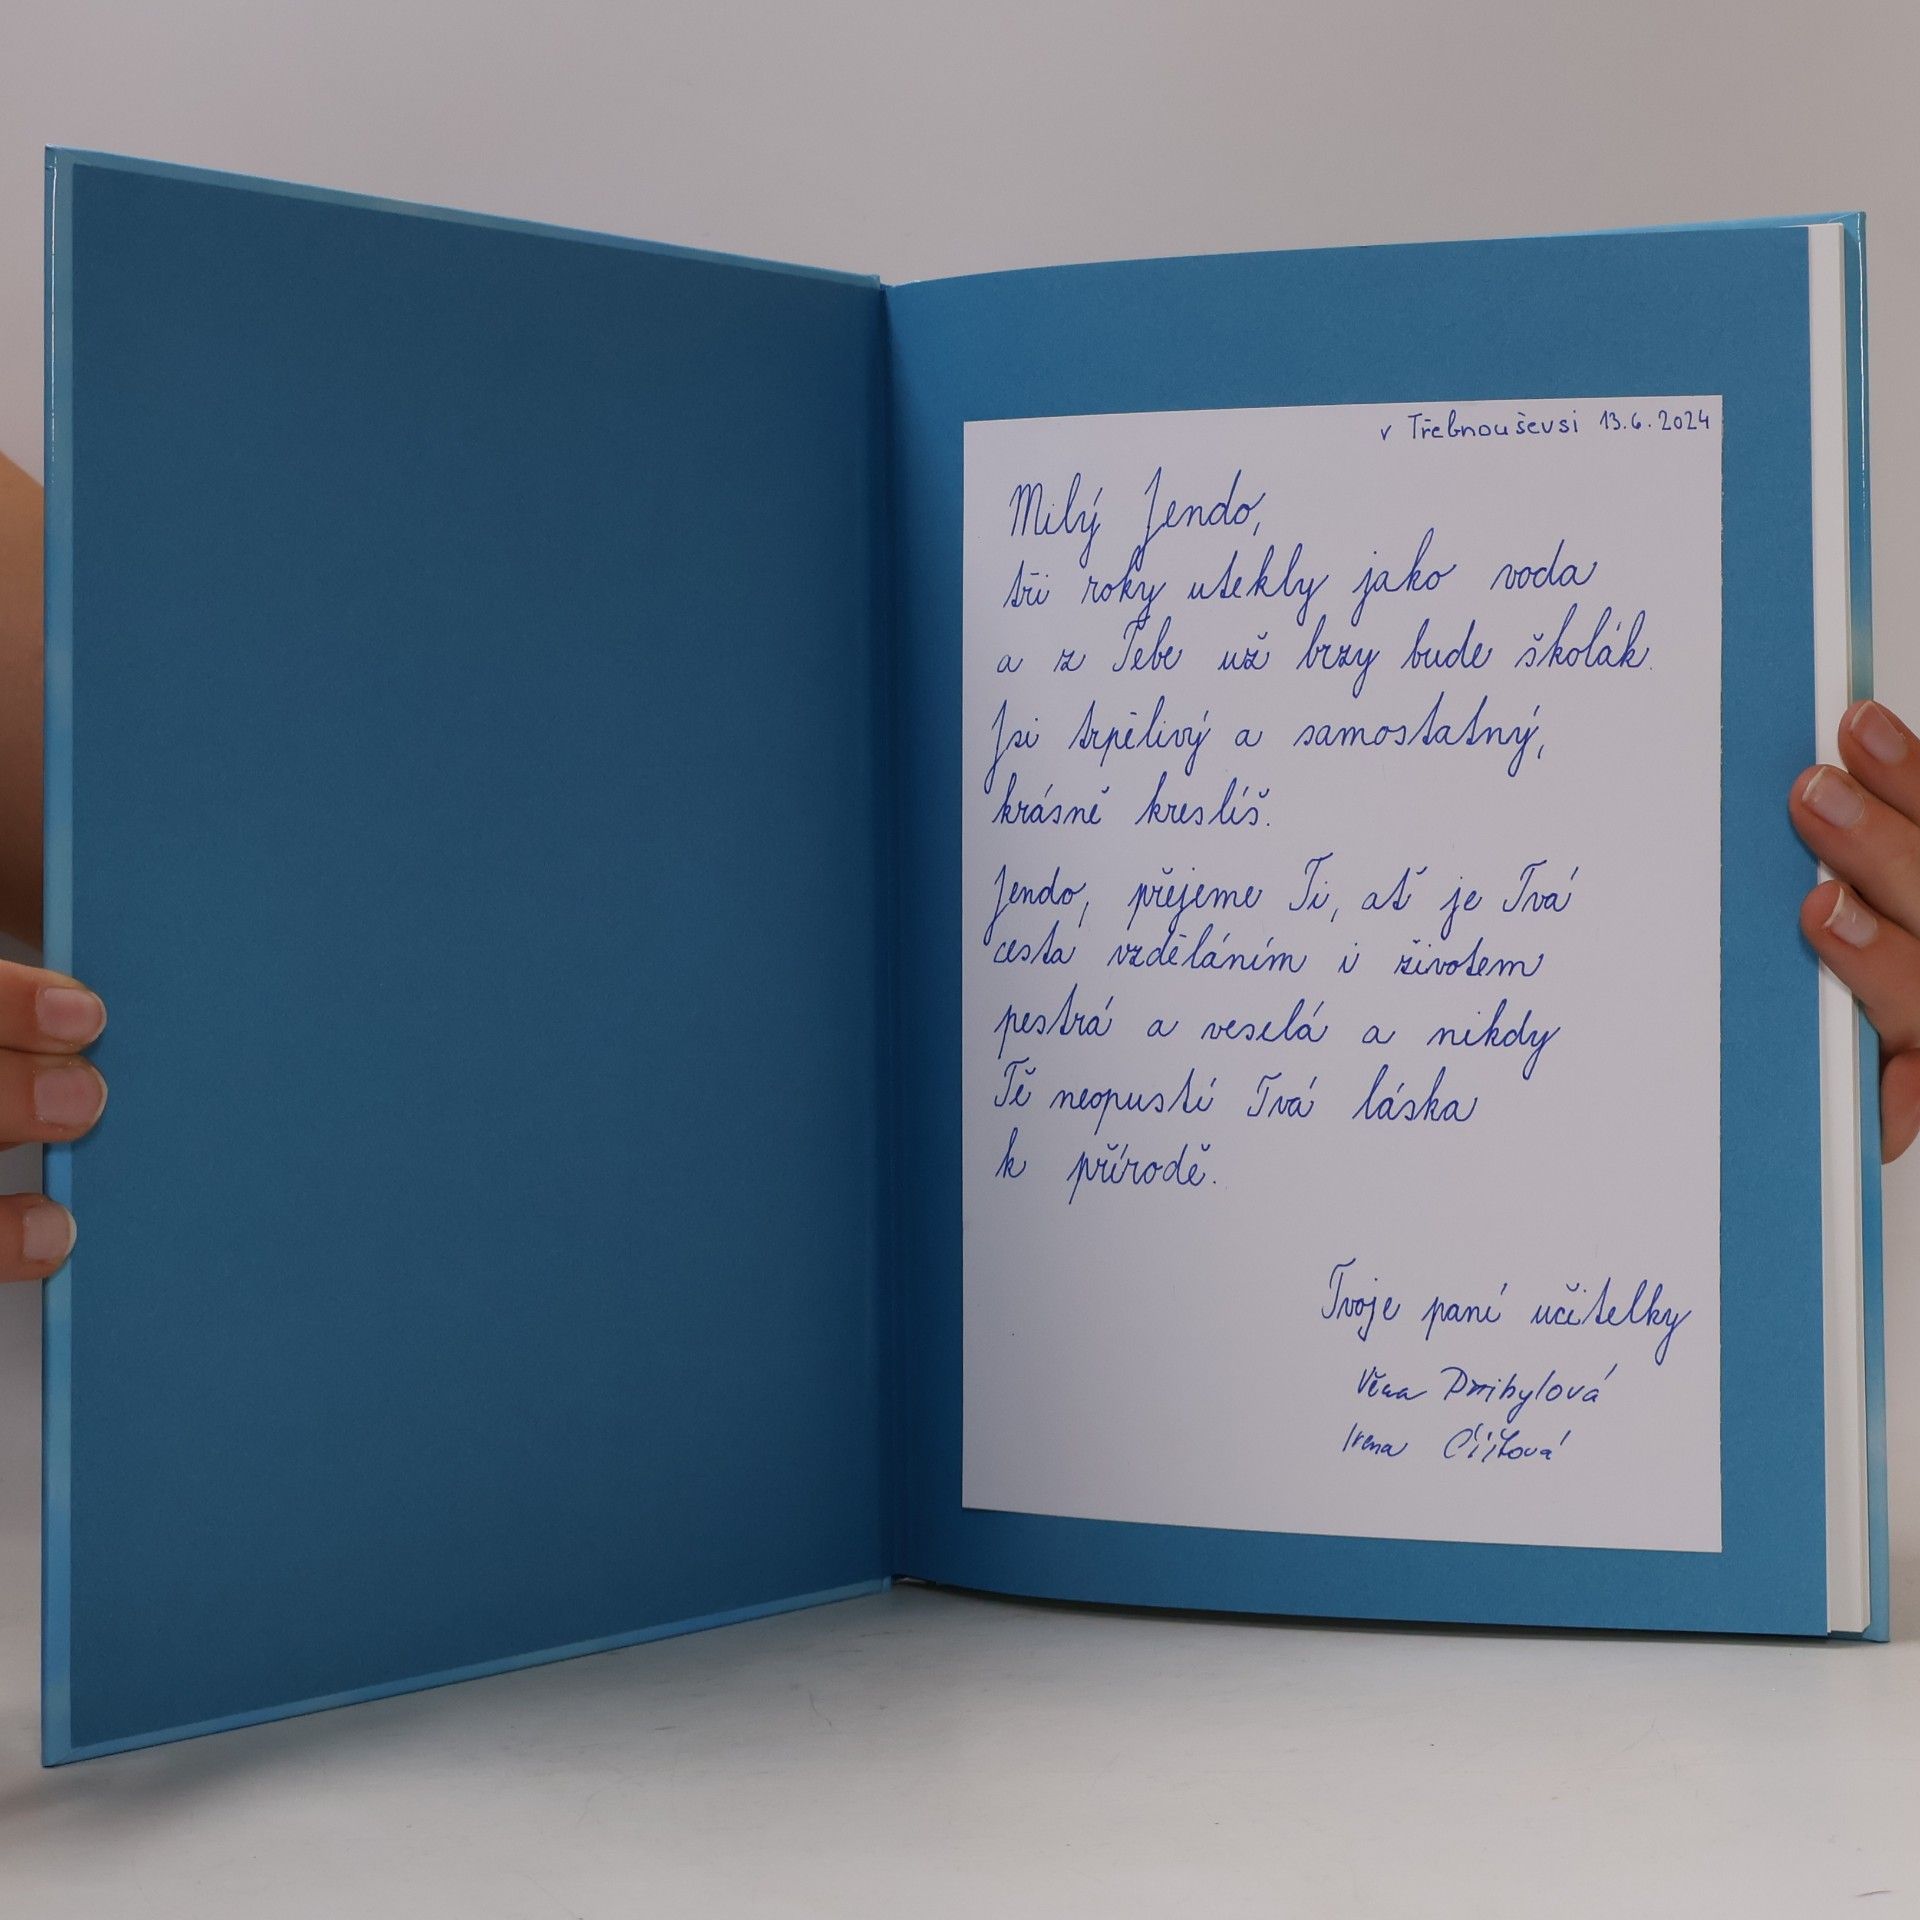 v Třebnouševsi 13.6.2024
Milý Jendo,
tři roky utekly jako voda
a z Tebe už brzy bude školák.
Jsi trpělivý a samostatný,
krásně kreslíš.
Jendo, přejeme Ti, ať je Tvá
cesta vzděláním i životem
pestrá a veselá a nikdy
Tě neopustí Tvá láska
k přírodě.
Tvoje paní učitelky
Věra Přibylová
Irena